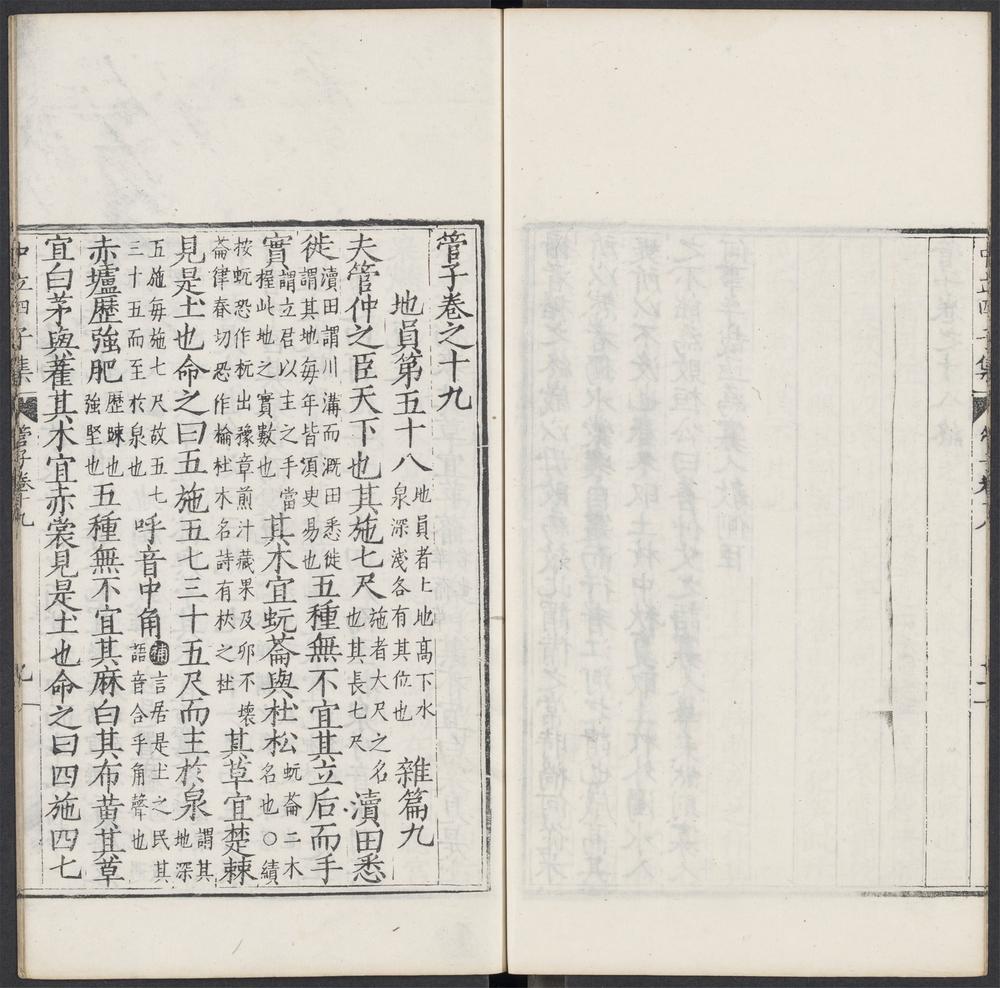 管子卷之十九
地員第五十八 地員者土地高下水泉深淺各有其位也 雜篇九
夫管仲之臣天下也其施七尺 施者大尺之名也其長七尺 瀆田悉
徙 瀆田謂川溝而溉田悉徙謂其地每年皆湏吏易也 五種無不宜其立后而手
實 謂立君以主之手當握此地之實數也 其木宜蚖菕與杜松 蚖菕二木名也○績
按蚖恐作杬出豫章煎汁藏果及卵不壞菕律春切恐作棆杜木名詩有杕之杜 其草宜楚棘
見是土也命之曰五施五七三十五尺而至於泉 謂其地深
五施每施七尺故五七三十五而至於泉也 呼音中角 補 言居是土之民其語音合乎角聲也
赤壚歷強肥 歷踈也強堅也 五種無不宜其麻白其布黄其草
宜白茅與雚其木宜赤棠見是土也命之曰四施四七
中立四子集 管子卷十九
九 一